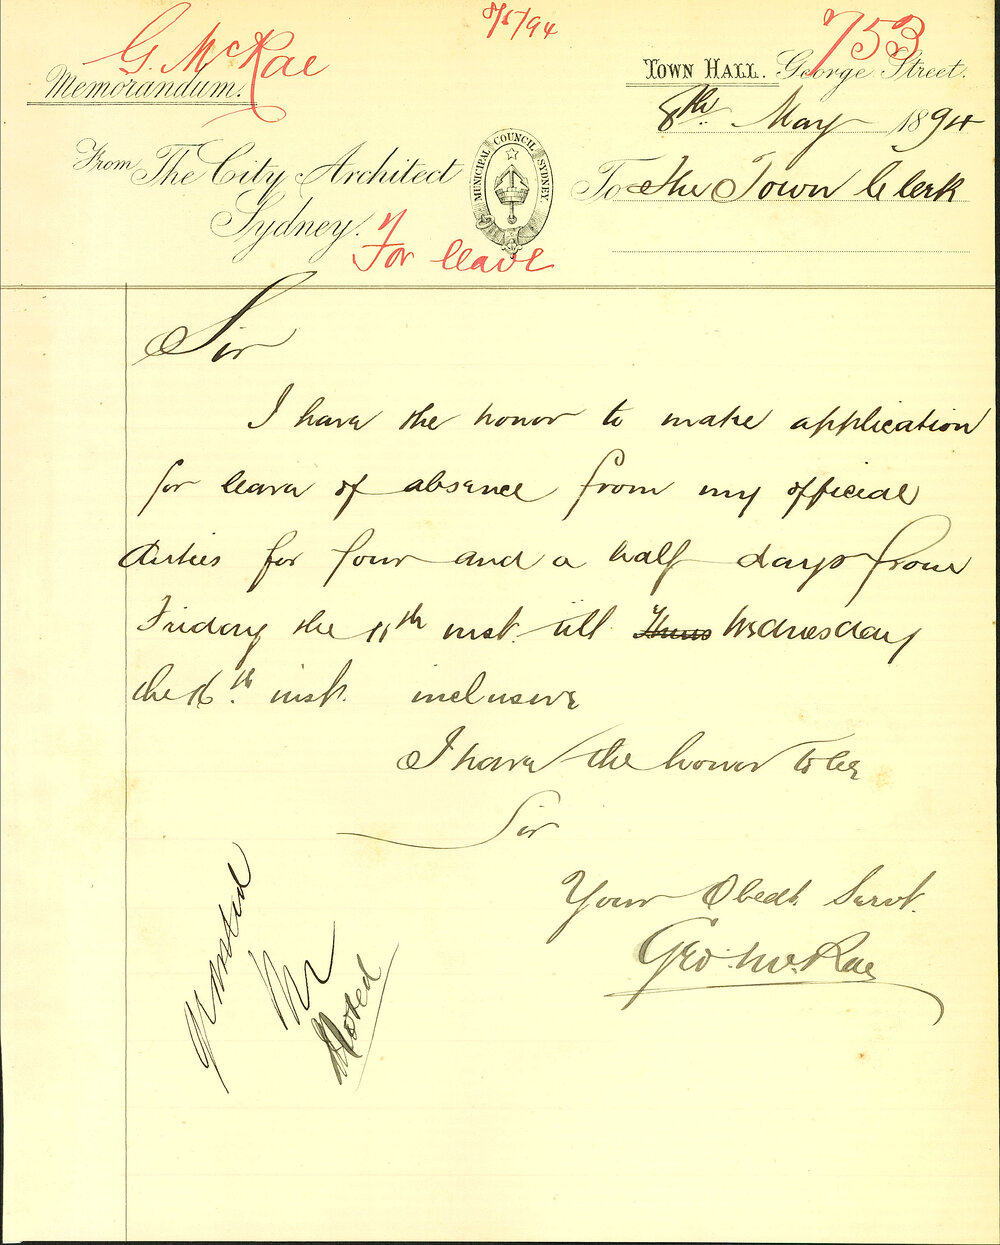 8/5/94
G. McRae
753
Memorandum.
TOWN HALL. George Street.
8th May 1894
From The City Architect
Sydney.
MUNICIPAL COUNCIL SYDNEY
To The Town Clerk
For leave
Sir
I have the honor to make application
for leave of absence from my official
duties for four and a half days from
Friday the 11th inst. till Thurs Wednesday
the 16th. inst. inclusive
I have the honor to be
Sir
Your Obedt. Servt.
Geo. McRae
Granted
Noted